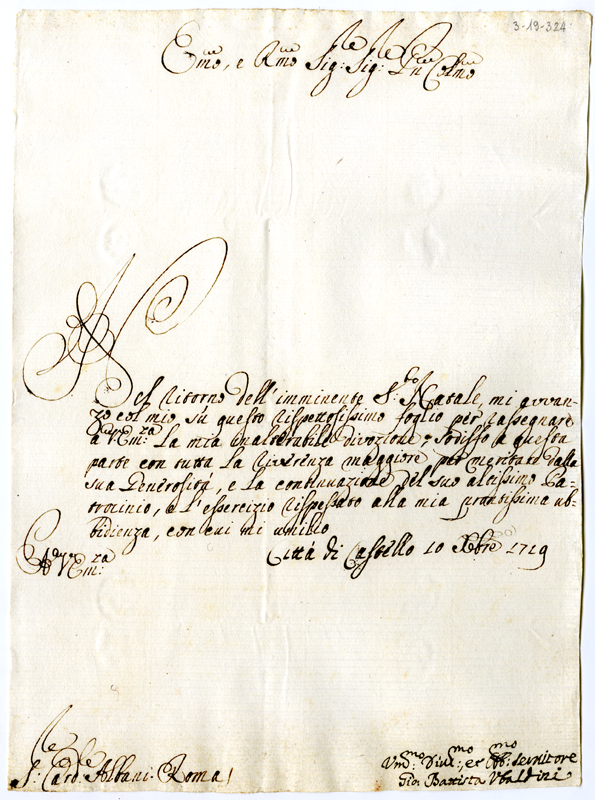 3-19-324
Em̃o, e Rm̃o Sig:re Sig:re Pñ Colm̃o
Nel ritorno dell'imminente S:to Natale, mi avvan-
zo col mio su questo rispettosissimo foglio per rassegnare
a V Em:za la mia inalterabile divozione; Sodisfo a questa
parte con tutta la riverenza maggiore per meritare dalla
sua Generosità, e la continuazione del suo altissimo Pa-
trocinio, e l'essercizio rispettato alla mia prontissima ub-
bidienza, con cui mi umilio
A V Em:za
Città di Castello 10 Xbre 1719
S: Card:le Albani Roma
Um:mo Div:mo et Obb:mo Servitore
Gio: Battista Ubaldini